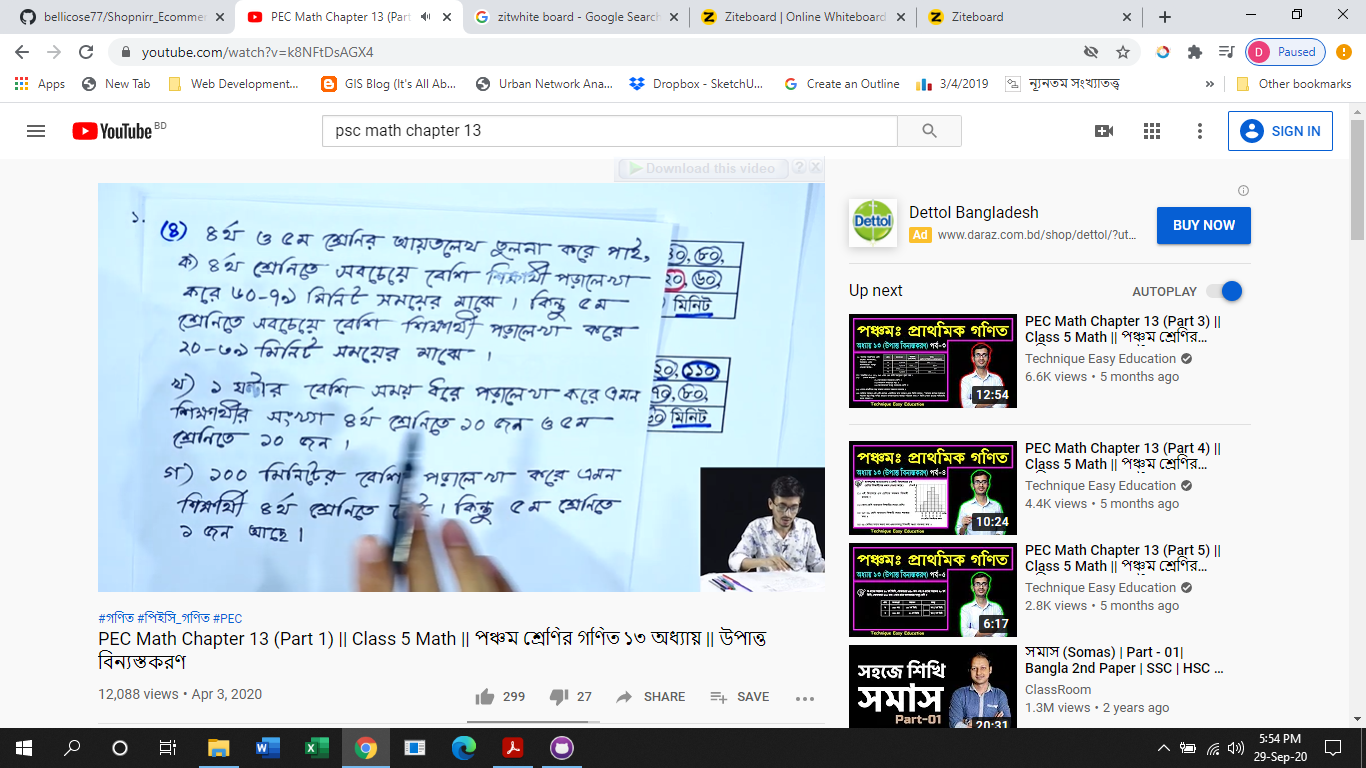 bellicose77/Shopnirr_Ecommer
PEC Math Chapter 13 (Part
zitwhite board - Google Search
Ziteboard | Online Whiteboard
Ziteboard
youtube.com/watch?v=k8NFtDsAGX4
D Paused
Apps
New Tab
Web Development...
GIS Blog (It's All Ab...
Urban Network Ana...
Dropbox - SketchU...
Create an Outline
3/4/2019
ন্যূনতম সংখ্যাতত্ত্ব
»
Other bookmarks
YouTube BD
psc math chapter 13
SIGN IN
Download this video
১.
(৪) ৪র্থ ও ৫ম শ্রেনির আয়তলেখ তুলনা করে পাই,
ক) ৪র্থ শ্রেনিতে সবচেয়ে বেশি শিক্ষার্থী পড়ালেখা
করে ৬০-৭৯ মিনিট সময়ের মাঝে। কিন্তু ৫ম
শ্রেনিতে সবচেয়ে বেশি শিক্ষার্থী পড়ালেখা করে
২০-৩৯ মিনিট সময়ের মাঝে।
খ) ১ ঘন্টার বেশি সময় ধরে পড়ালেখা করে এমন
শিক্ষার্থীর সংখ্যা ৪র্থ শ্রেনিতে ১০ জন ও ৫ম
শ্রেনিতে ১০ জন।
গ) ১০০ মিনিটের বেশি পড়ালেখা করে এমন
শিক্ষার্থী ৪র্থ শ্রেনিতে । কিন্তু ৫ম শ্রেনিতে
১ জন আছে।
৮০,
২০, ৬০,
মিনিট
২০, ১১০
৭০, ৮০,
মিনিট
#গণিত #পিইসি_গণিত #PEC
PEC Math Chapter 13 (Part 1) || Class 5 Math || পঞ্চম শ্রেণির গণিত ১৩ অধ্যায় || উপাত্ত
বিন্যস্তকরণ
12,088 views • Apr 3, 2020
299
27
SHARE
SAVE
Dettol
Dettol Bangladesh
Ad www.daraz.com.bd/shop/dettol/?ut...
BUY NOW
Up next
AUTOPLAY
পঞ্চমঃ প্রাথমিক গণিত
অধ্যায় ১৩ (উপাত্ত বিন্যস্তকরণ) পর্ব-৩
Technique Easy Education
12:54
PEC Math Chapter 13 (Part 3) ||
Class 5 Math || পঞ্চম শ্রেণির...
Technique Easy Education
6.6K views • 5 months ago
পঞ্চমঃ প্রাথমিক গণিত
অধ্যায় ১৩ (উপাত্ত বিন্যস্তকরণ) পর্ব-৪
Technique Easy Education
10:24
PEC Math Chapter 13 (Part 4) ||
Class 5 Math || পঞ্চম শ্রেণির...
Technique Easy Education
4.4K views • 5 months ago
পঞ্চমঃ প্রাথমিক গণিত
অধ্যায় ১৩ (উপাত্ত বিন্যস্তকরণ) পর্ব-৫
Technique Easy Education
6:17
PEC Math Chapter 13 (Part 5) ||
Class 5 Math || পঞ্চম শ্রেণির...
Technique Easy Education
2.8K views • 5 months ago
সহজে শিখি
সমাস
Part-01
20:31
সমাস (Somas) | Part - 01|
Bangla 2nd Paper | SSC | HSC ...
ClassRoom
1.3M views • 2 years ago
5:54 PM
29-Sep-20